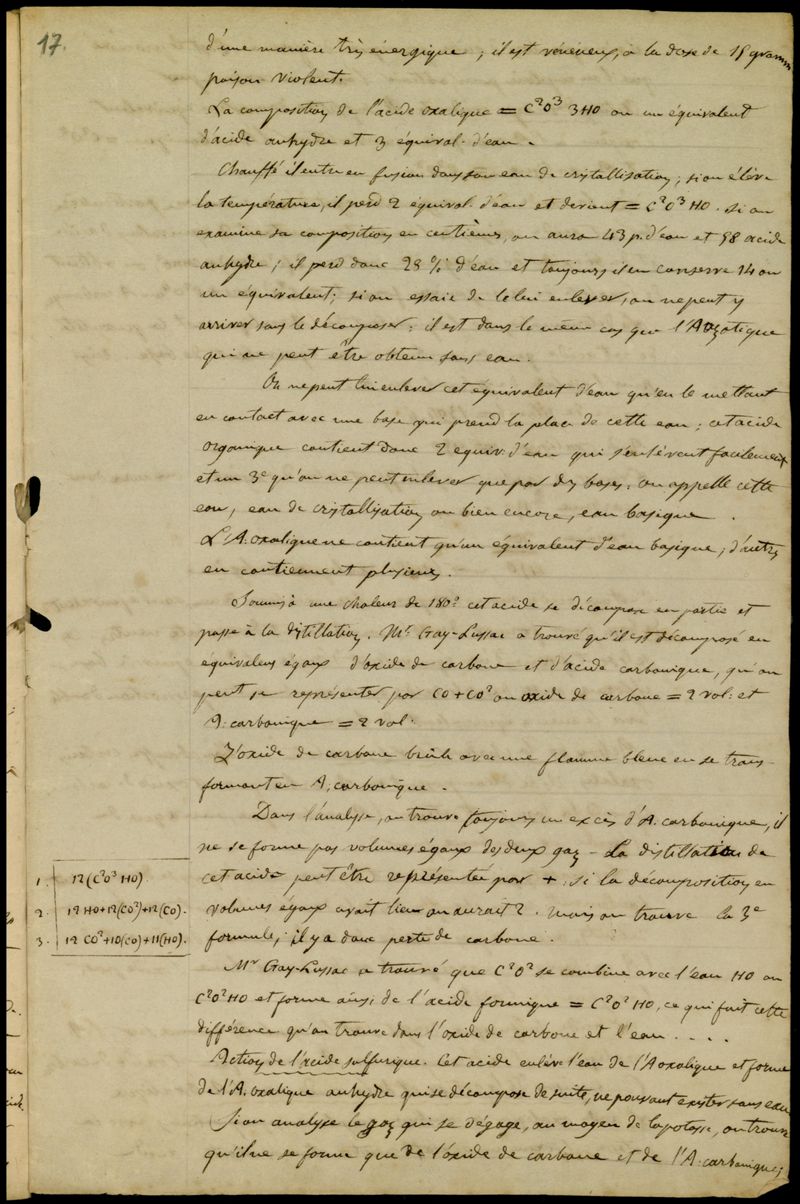 17.
d'une manière très énergique ; il est vénéneux, à la dose de 15 gramm
poison violent.
La composition de l'acide oxalique = C²O³ 3HO ou un équivalent
d'acide anhydre et 3 équival. d'eau.
Chauffé il entre en fusion dans son eau de cristallisation ; si on élève
la température, il perd 2 équival. d'eau et devient = C²O³ HO. Si on
examine sa composition en centièmes, on aura 43 p. d'eau et 58 acide
anhydre ; il perd donc 28 % d'eau et toujours il en conserve 14 ou
un équivalent ; si on essaie de le lui enlever, on ne peut y
arriver sans le décomposer ; il est dans le même cas que l'Azotique
qui ne peut être obtenu sans eau.
On ne peut lui enlever cet équivalent d'eau qu'en le mettant
en contact avec une base qui prend la place de cette eau ; cet acide
organique contient donc 2 equiv. d'eau qui s'enlèvent facilement
et un 3e qu'on ne peut enlever que par des bases. on appelle cette
eau, eau de cristallisation ou bien encore, eau basique.
L'A. oxalique ne contient qu'un équivalent d'eau basique ; d'autres
en contiennent plusieurs.
Soumis à une chaleur de 180° cet acide se décompose en partie et
passe à la distillation. Mr Gay-Lussac a trouvé qu'il est décomposé en
équivalens égaux d'oxide de carbone et d'acide carbonique, qu'on
peut se représenter par CO + CO² ou oxide de carbone = 2 vol. et
A. carbonique = 2 vol.
L'oxide de carbone brûle avec une flamme bleue en se trans-
formant en A. carbonique.
Dans l'analyse, on trouve toujours un excès d'A. carbonique, il
ne se forme pas volumes égaux des deux gaz – La distillation de
cet acide peut être représentée par + . si la décomposition en
volumes égaux avait lieu on aurait 2. mais on trouve la 3e
formule ; il y a donc perte de carbone.
1. 12 (C²O³ HO).
2. 12 HO + 12 (CO²) + 12 (CO).
3. 12 CO² + 10 (CO) + 11 (HO).
Mr Gay-Lussac a trouvé que C²O² se combine avec l'eau HO ou
C²O² HO et forme ainsi de l'acide formique = C²O² HO, ce qui fait cette
différence qu'on trouve dans l'oxide de carbone et l'eau . . . .
Action de l'acide sulfurique. Cet acide enlève l'eau de l'A oxalique et forme
de l'A. oxalique anhydre qui se décompose de suite, ne pouvant exister sans eau
Si on analyse le gaz qui se dégage, au moyen de la potasse, on trouve
qu'il ne se forme que de l'oxide de carbone et de l'A. carbonique ;